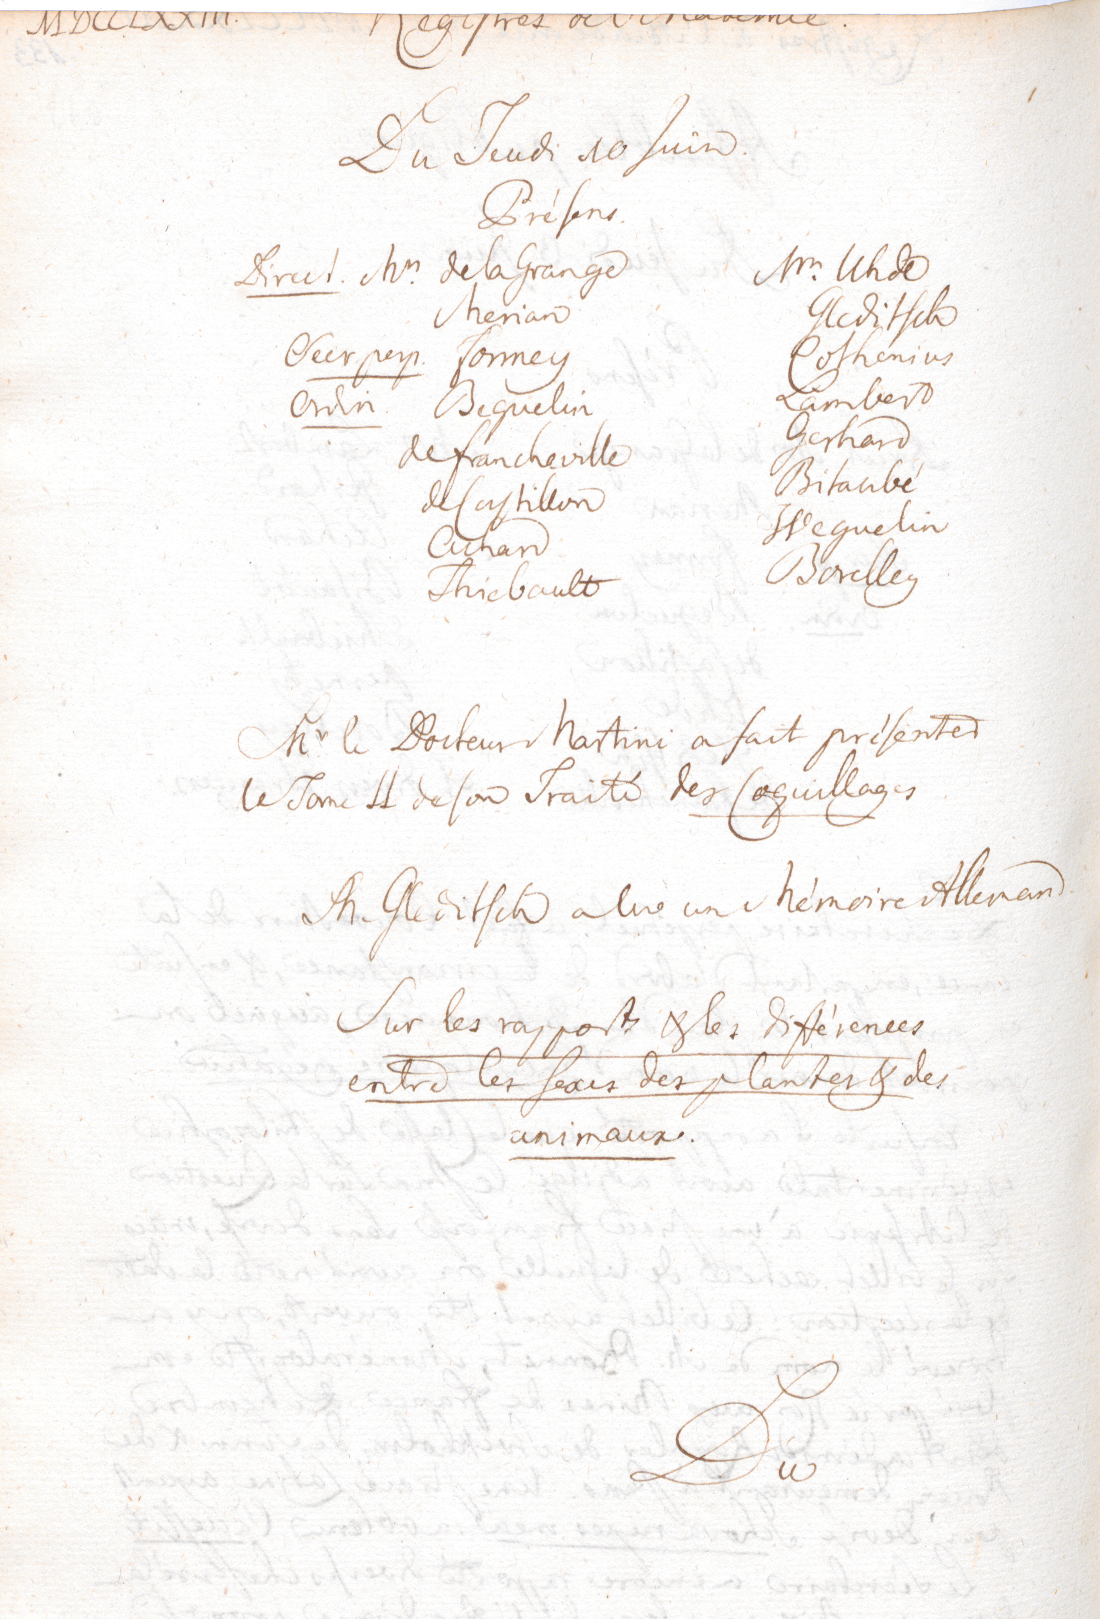 MDCCLXXIII. Registres de l'Academie.
Du Jeudi 10 Juin.
Présens.
Direct. Mrs. de la Grange
Merian
Secr. perp. Formey
Ordin. Beguelin
de Francheville
de Castillon
Achard
Thiebault
Mrs. Uhde
Gleditsch
Cothenius
Lambert
Gerhard
Bitaubé
Weguelin
Borelley
Mr. le Docteur Martini a fait présenter
le Tome II de son Traité des Coquillages
Mr. Gleditsch a lu un Mémoire Allemand
Sur les rapports & les différences
entre les sexes des plantes & des
animaux.
Du